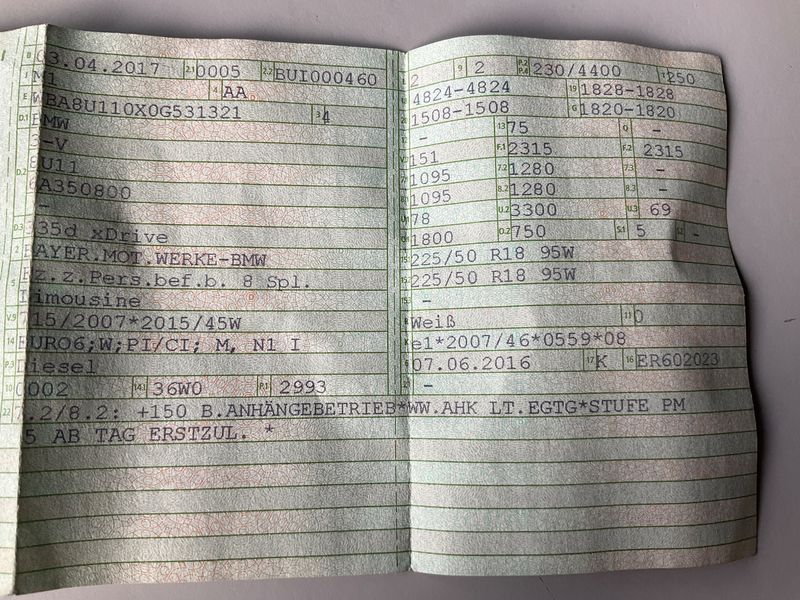 B 03.04.2017 2.1 0005 2.2 BUI000460
J M1 4 AA
E WBA8U110X0G531321 3 4
D.1 BMW
3-V
D.2 8U11
6A350800
-
D.3 335d xDrive
2 BAYER.MOT.WERKE-BMW
5 Fz.z.Pers.bef.b. 8 Spl.
Limousine
V.9 715/2007*2015/45W
14 EURO6;W;PI/CI; M, N1 I
P.3 Diesel
10 0002 14.1 36W0 P.1 2993
L 2 9 2 P.2 P.4 230/4400 T 250
18 4824-4824 19 1828-1828
20 1508-1508 G 1820-1820
- 13 75 Q -
V.7 151 F.1 2315 F.2 2315
7.1 1095 7.2 1280 7.3 -
8.1 1095 8.2 1280 8.3 -
U.1 78 U.2 3300 U.3 69
O.1 1800 O.2 750 S.1 5 S.2 -
15.1 225/50 R18 95W
15.2 225/50 R18 95W
-
R Weiß 11 0
K e1*2007/46*0559*08
6 07.06.2016 17 K 16 ER602023
21 -
22 7.2/8.2: +150 B.ANHÄNGEBETRIEB*WW.AHK LT.EGTG*STUFE PM
5 AB TAG ERSTZUL. *